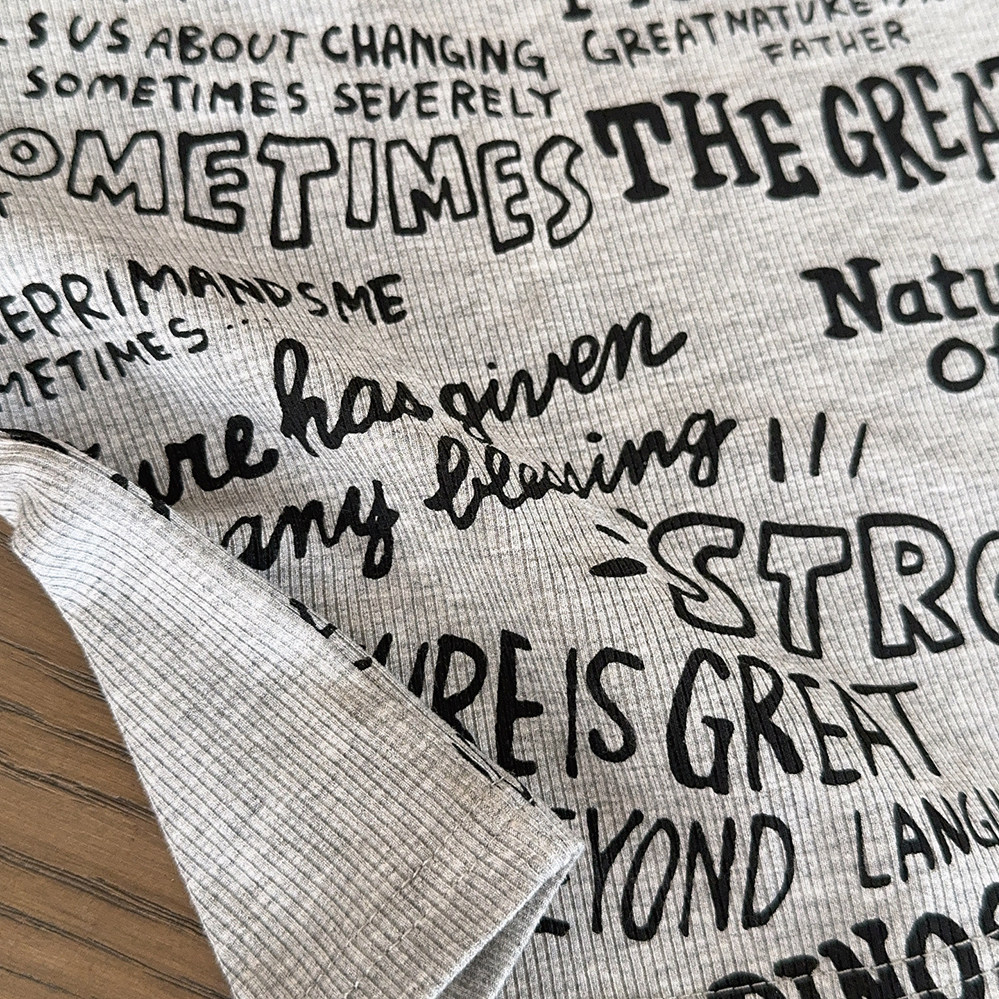 S US ABOUT CHANGING
SOMETIMES SEVERELY
GREAT NATURE IS
FATHER
OMETIMES
THE GREAT
EPRIMANDS ME
METIMES...
Natu
Of
ure has given
any blessing !!!
STRO
URE IS GREAT
EYOND LANGU
DINOS